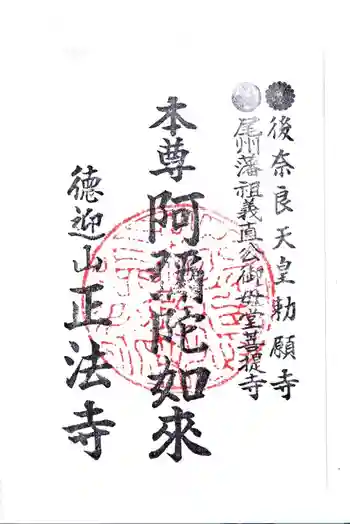 後奈良天皇勅願寺
尾州藩祖義直公御母堂菩提寺
本尊阿弥陀如來
徳迎山正法寺